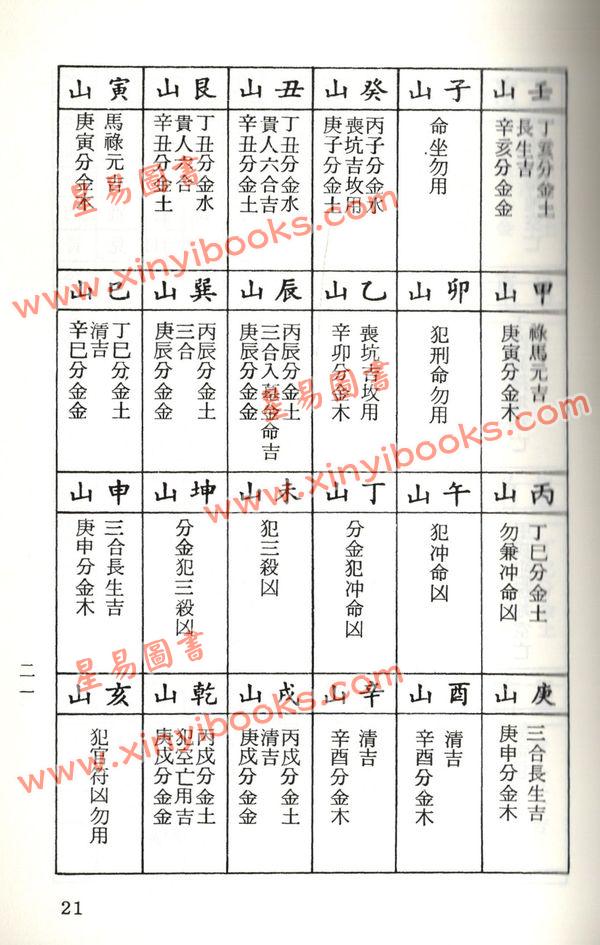 壬山
丁亥分金土
長生吉
辛亥分金金
子山
命坐勿用
癸山
丙子分金水
喪坑吉坟用
庚子分金土
丑山
丁丑分金水
貴人六合吉
辛丑分金土
艮山
丁丑分金水
貴人六合
辛丑分金土
寅山
馬祿元吉
庚寅分金木
甲山
祿馬元吉
庚寅分金木
卯山
犯刑命勿用
乙山
喪坑吉坟用
辛卯分金木
辰山
丙辰分金土
三合入墓金命吉
庚辰分金金
巽山
丙辰分金土
三合
庚辰分金金
巳山
丁巳分金土
清吉
辛巳分金金
丙山
丁巳分金土
勿兼冲命凶
午山
犯冲命凶
丁山
分金犯冲命凶
未山
犯三殺凶
坤山
分金犯三殺凶
申山
三合長生吉
庚申分金木
庚山
三合長生吉
庚申分金木
酉山
清吉
辛酉分金木
辛山
清吉
辛酉分金木
戌山
丙戌分金土
清吉
庚戌分金金
乾山
丙戌分金土
犯空亡用吉
庚戌分金金
亥山
犯官符凶勿用
二一
21
星易圖書
www.xinyibooks.com
星易圖書
www.xinyibooks.com
星易圖書
www.xinyibooks.com